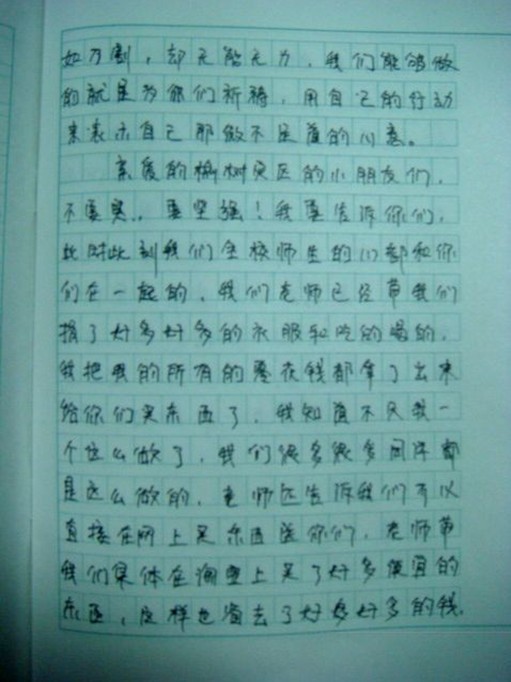 如刀割，却无能无力，我们能够做
的就是为你们祈祷，用自己的行动
来表示自己那微不足道的心意。
亲爱的樟树灾区的小朋友们，
不要哭，要坚强！我要告诉你们，
此时此刻我们全校师生的心都和你
们在一起的，我们老师已经带我们
捐了好多好多的衣服和吃的喝的，
我把我的所有的压岁钱都拿了出来
给你们买东西了，我知道不只我一
个这么做了，我们很多很多同学都
是这么做的，老师还告诉我们可以
直接在网上买东西送你们，老师带
我们集体在淘宝上买了好多便宜的
东西，这样也省去了好多好多的钱。